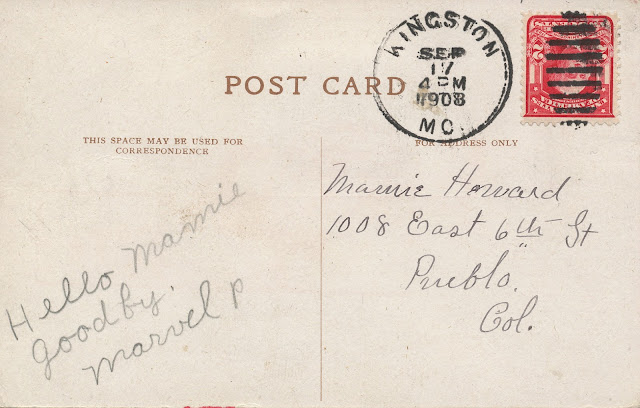 KINGSTON
SEP
17
4 PM
1908
MO.
POST CARD
THIS SPACE MAY BE USED FOR
CORRESPONDENCE
FOR ADDRESS ONLY
Hello Mamie
Goodby.
Marvel P
Mamie Howard
1008 East 6th St
Pueblo,
Col.